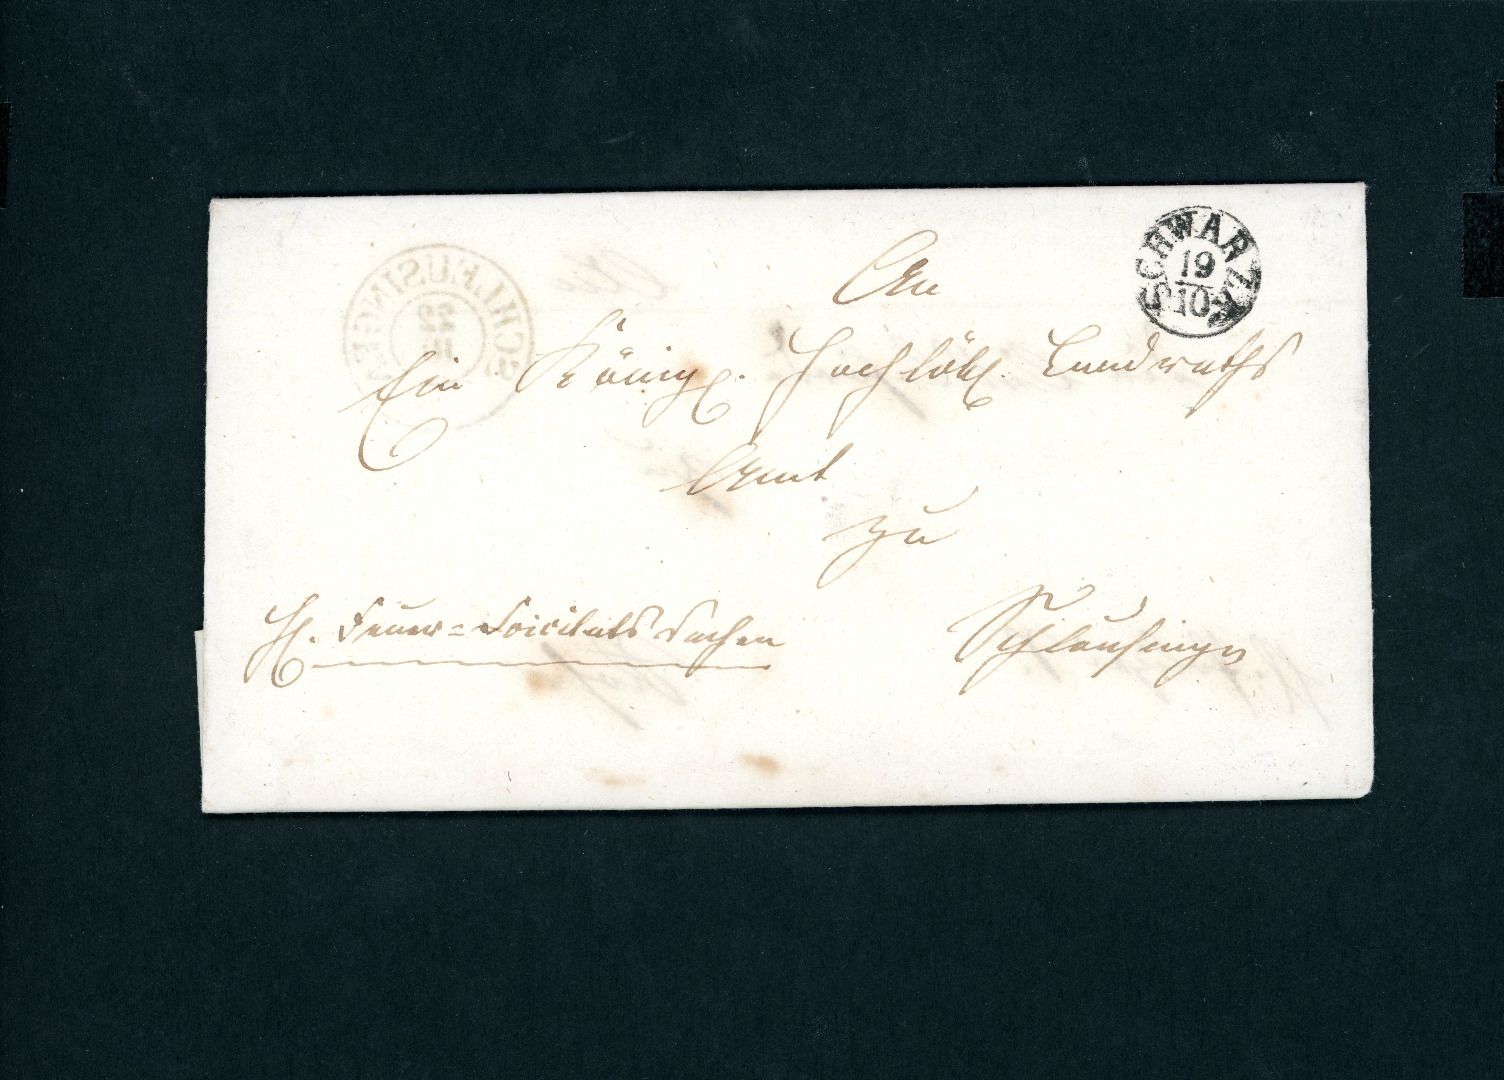 SCHWARZA
19
10
An
Ein Königl. Hochlöbl. Landraths
Amt
zu
Schleusingen
H. Feuer=Soicitäts Sachen
SCHLEUSINGEN
22